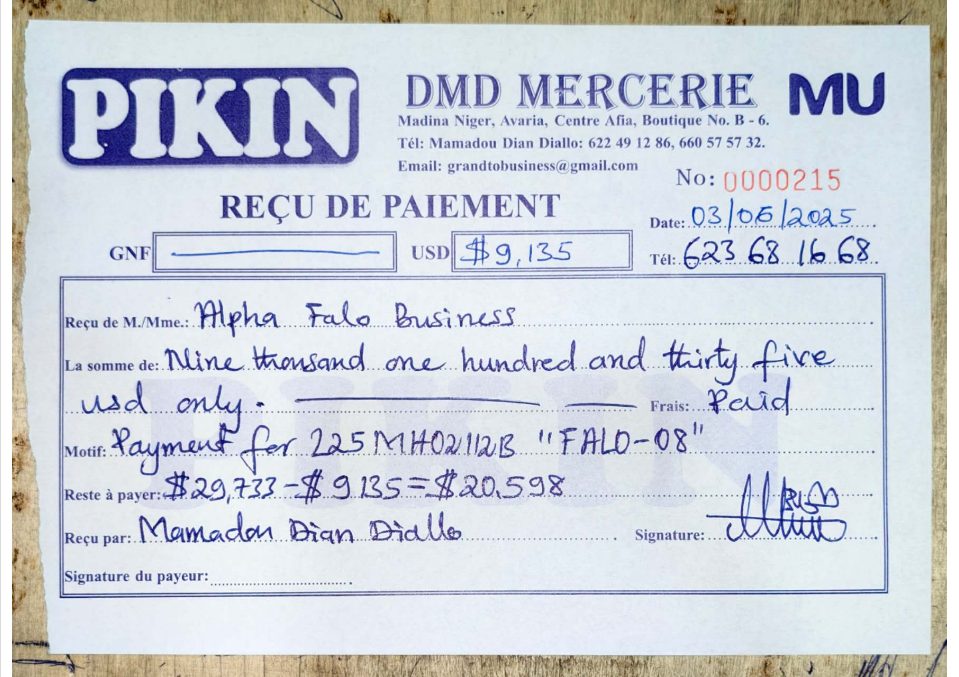 PIKIN
DMD MERCERIE MU
Madina Niger, Avaria, Centre Afia, Boutique No. B - 6.
Tél: Mamadou Dian Diallo: 622 49 12 86, 660 57 57 32.
Email: grandtobusiness@gmail.com
No: 0000215
REÇU DE PAIEMENT
Date: 03/06/2025
GNF USD $9,135
Tél: 623 68 16 68
Reçu de M./Mme.: Alpha Falo Business
La somme de: Nine thousand one hundred and thirty five
usd only. Frais: Paid
Motif: Payment for 225MH02112B "FALO-08"
Reste à payer: $29,733 - $9135 = $20,598
Reçu par: Mamadou Dian Diallo Signature:
Signature du payeur:
PIKIN